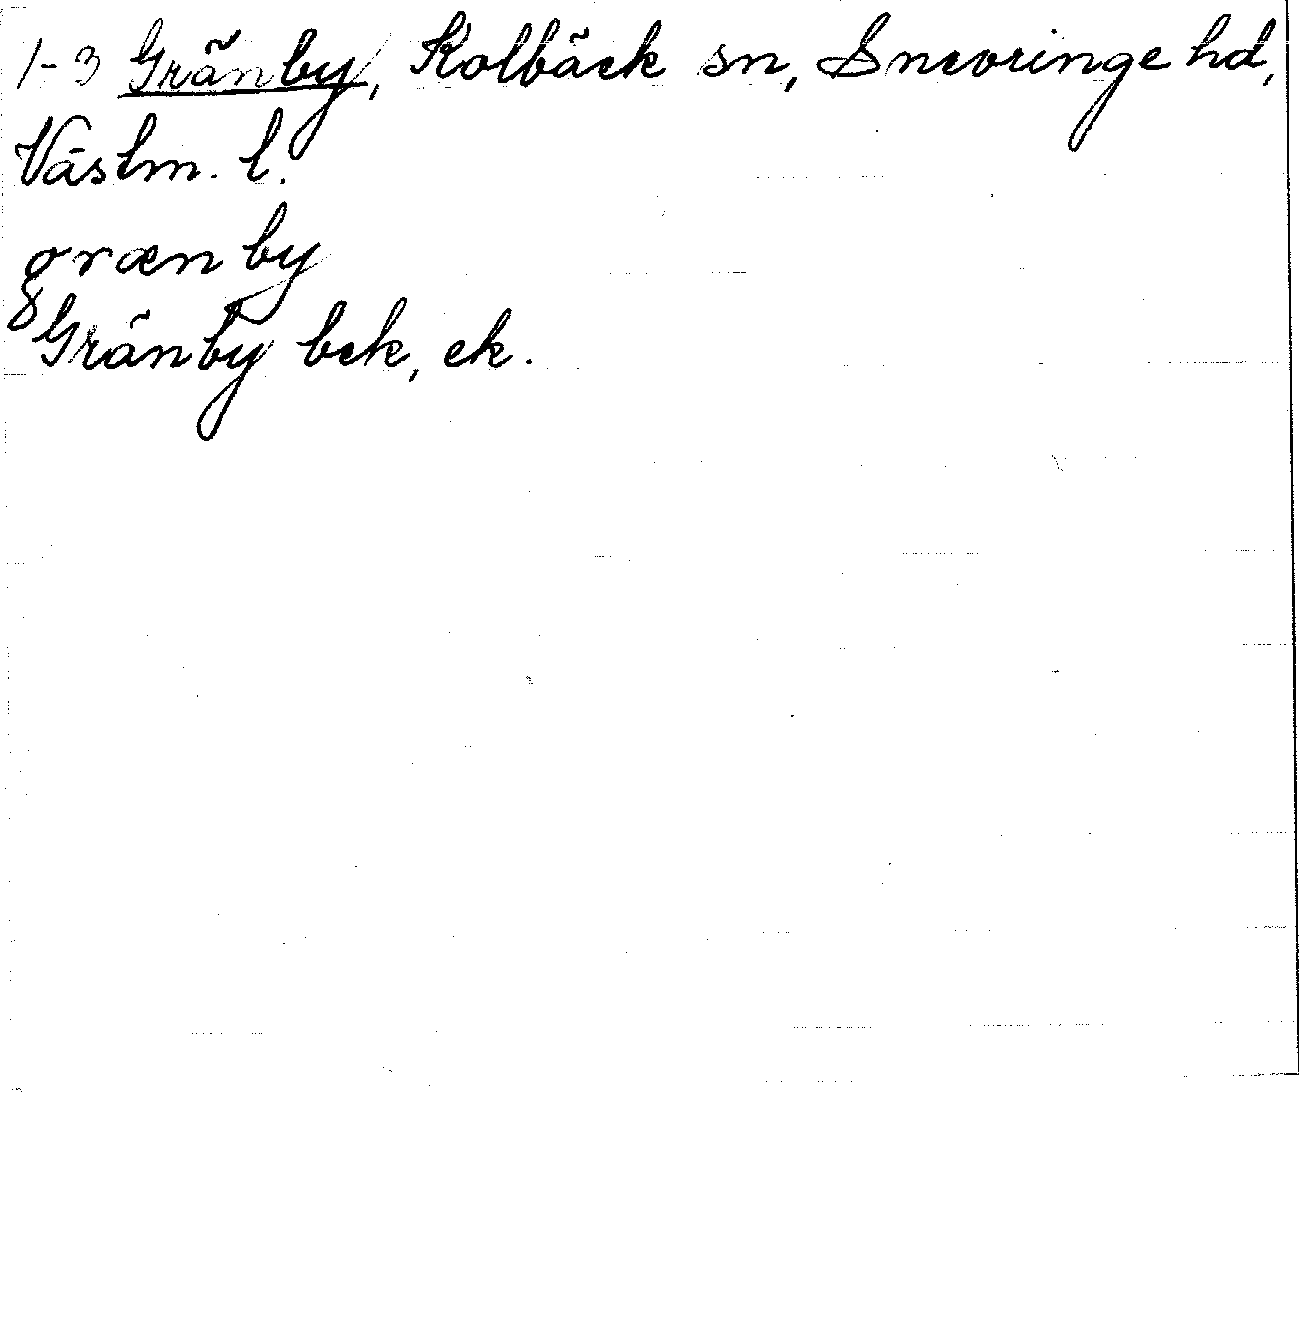 1-3 Gränby, Kolbäck sn, Snevringe hd,
Västm. l.
grænby
Gränby bek, ek.